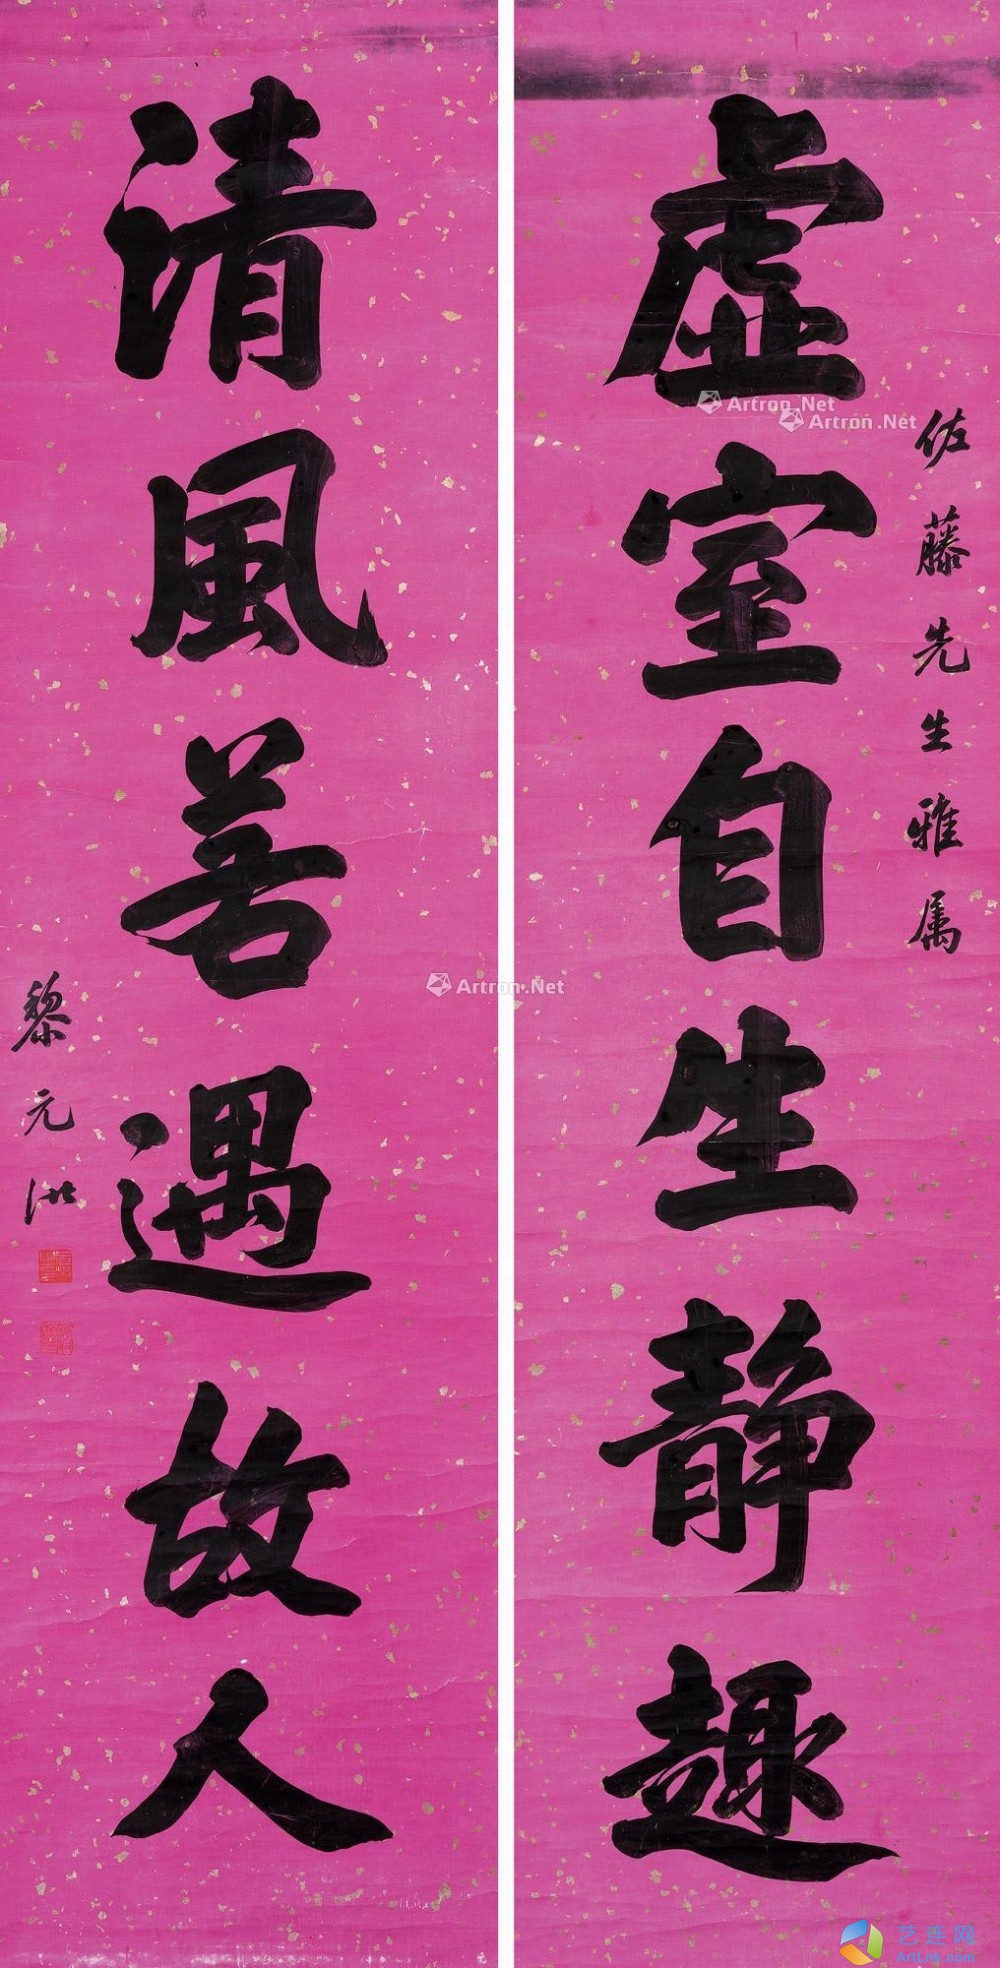 佐藤先生雅属
虚室自生静趣
清風善遇故人
黎元洪
Artron.Net
Artron.Net
Artron.Net
艺连网
ArtLnk.com